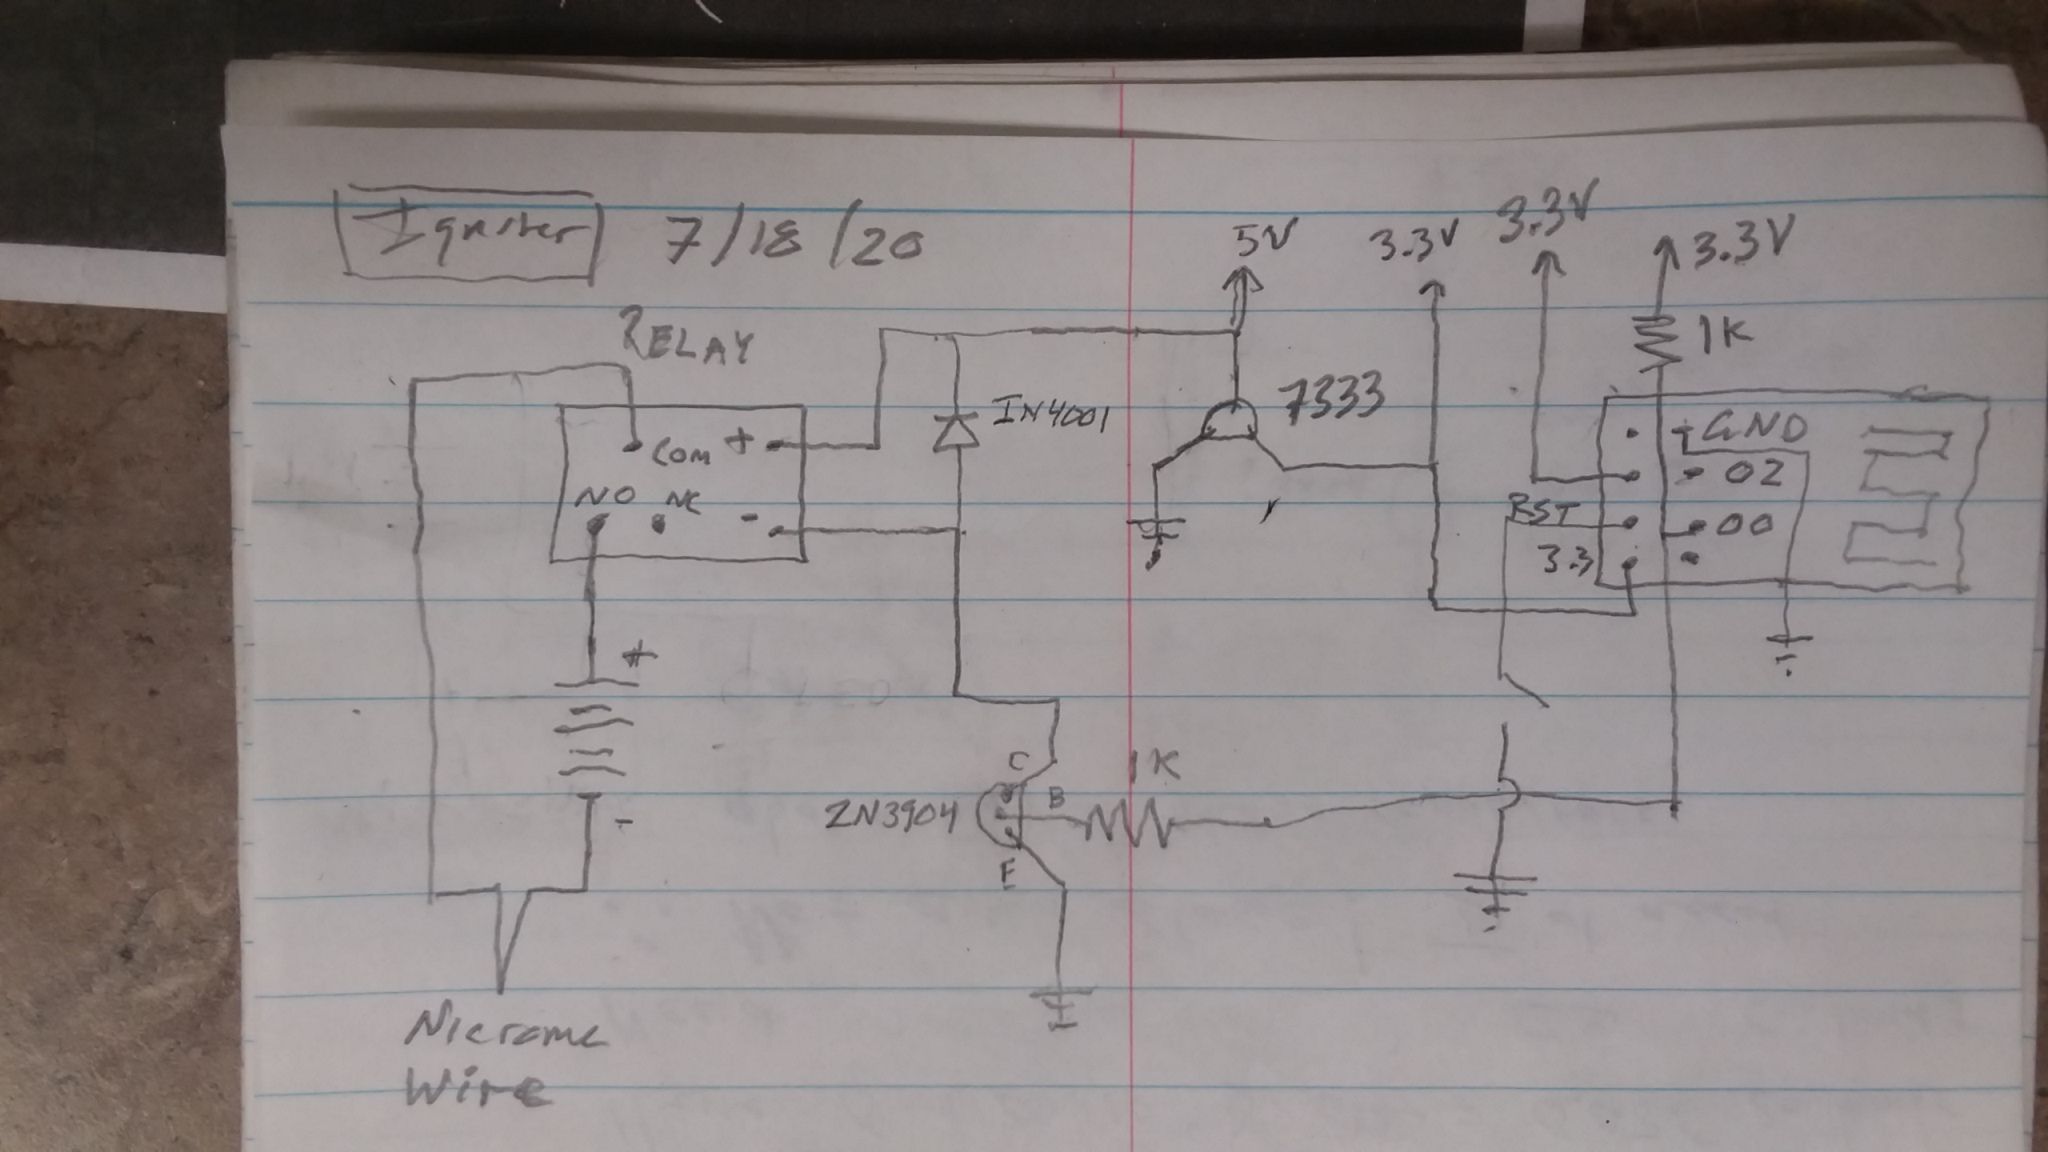 Igniter 7/18/20
5V 3.3V 3.3V 3.3V
RELAY
1K
IN4001 7333
COM +
GND
NO NC -
02
RST 00
3.3
+
-
1K
C
B
2N3904
E
Nicrome
Wire